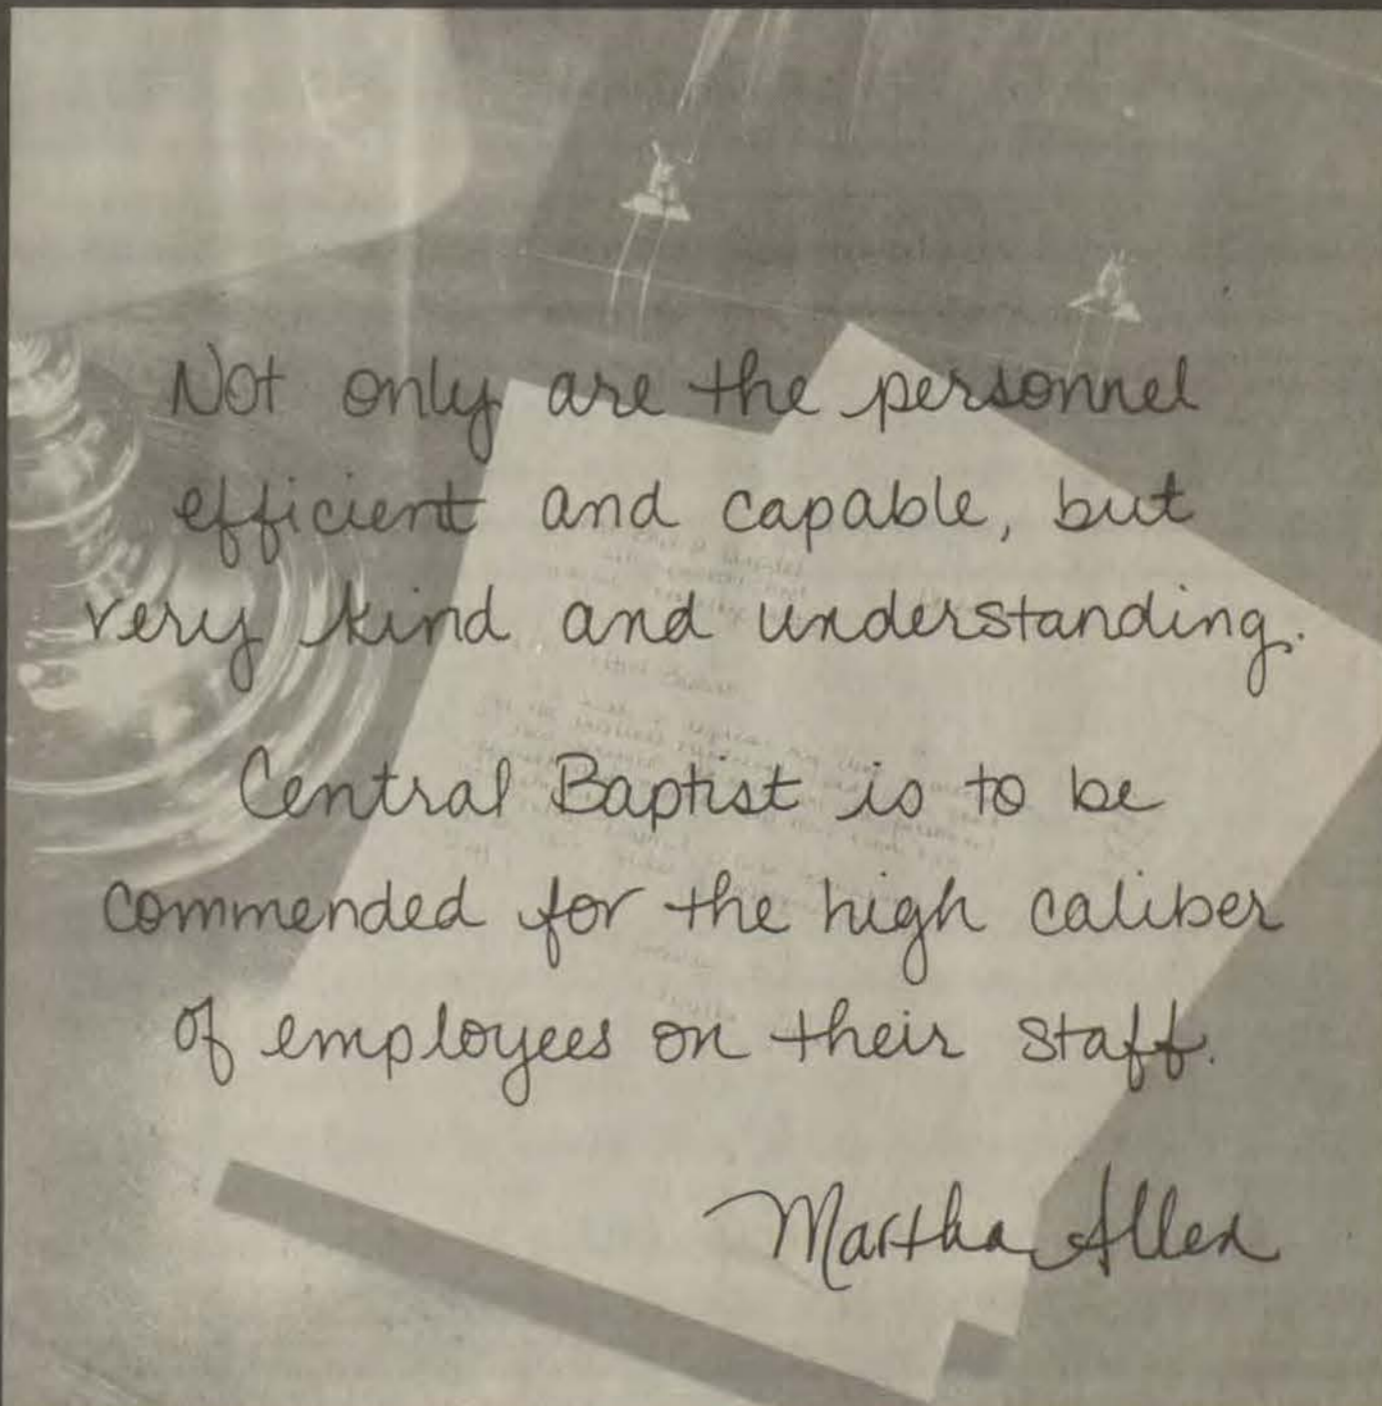 Not only are the personnel
efficient and capable, but
very kind and understanding.
Central Baptist is to be
commended for the high caliber
of employees on their staff.
Martha Allen